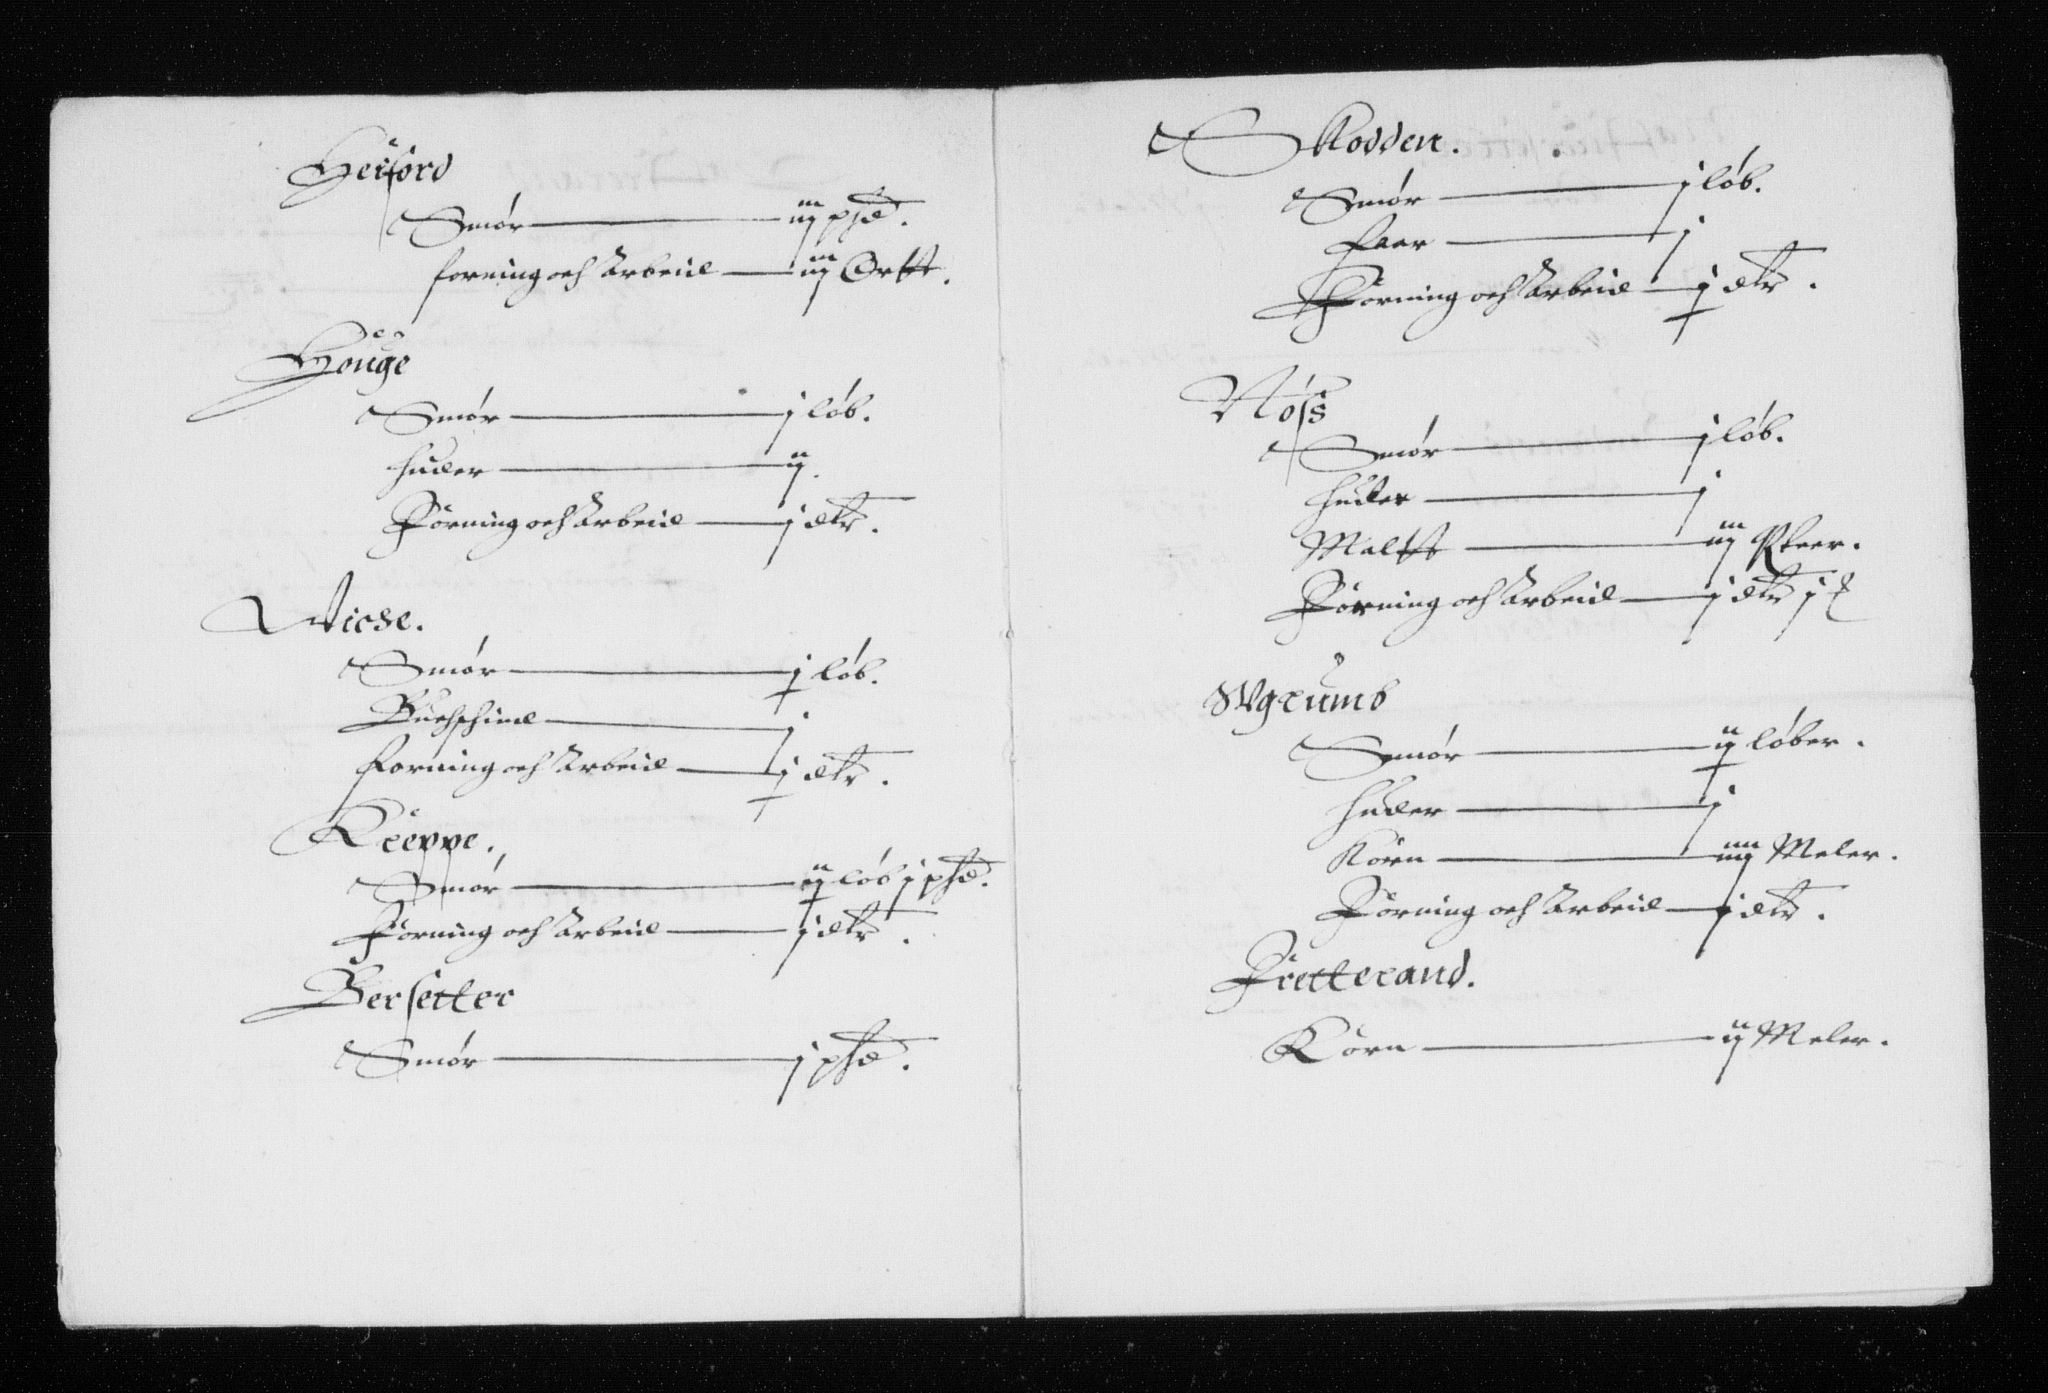 Herford
Smör iij psd.
forning och Arbeid iij Ortt.
Höuge
Smör j löb.
huder ij.
Förning och Arbeid j dlr.
Wicse.
Smör j löb.
Buchschind j
forning och Arbeid j dlr.
Kreppe.
Smör ij löb j psd.
Förning och Arbeid j dlr.
Bersetter
Smör j psd.
Skodden.
Smör j löb.
Faar j
Förning och Arbeid j dlr.
Nöss
Smör j löb.
huder j
Maltt iij
Förning och Arbeid j dlr j
Wgrumb
Smör ij löber.
huder j
Körn iiij Meler.
Förning och Arbeid j dlr.
Fretterand.
Körn ij Meler.